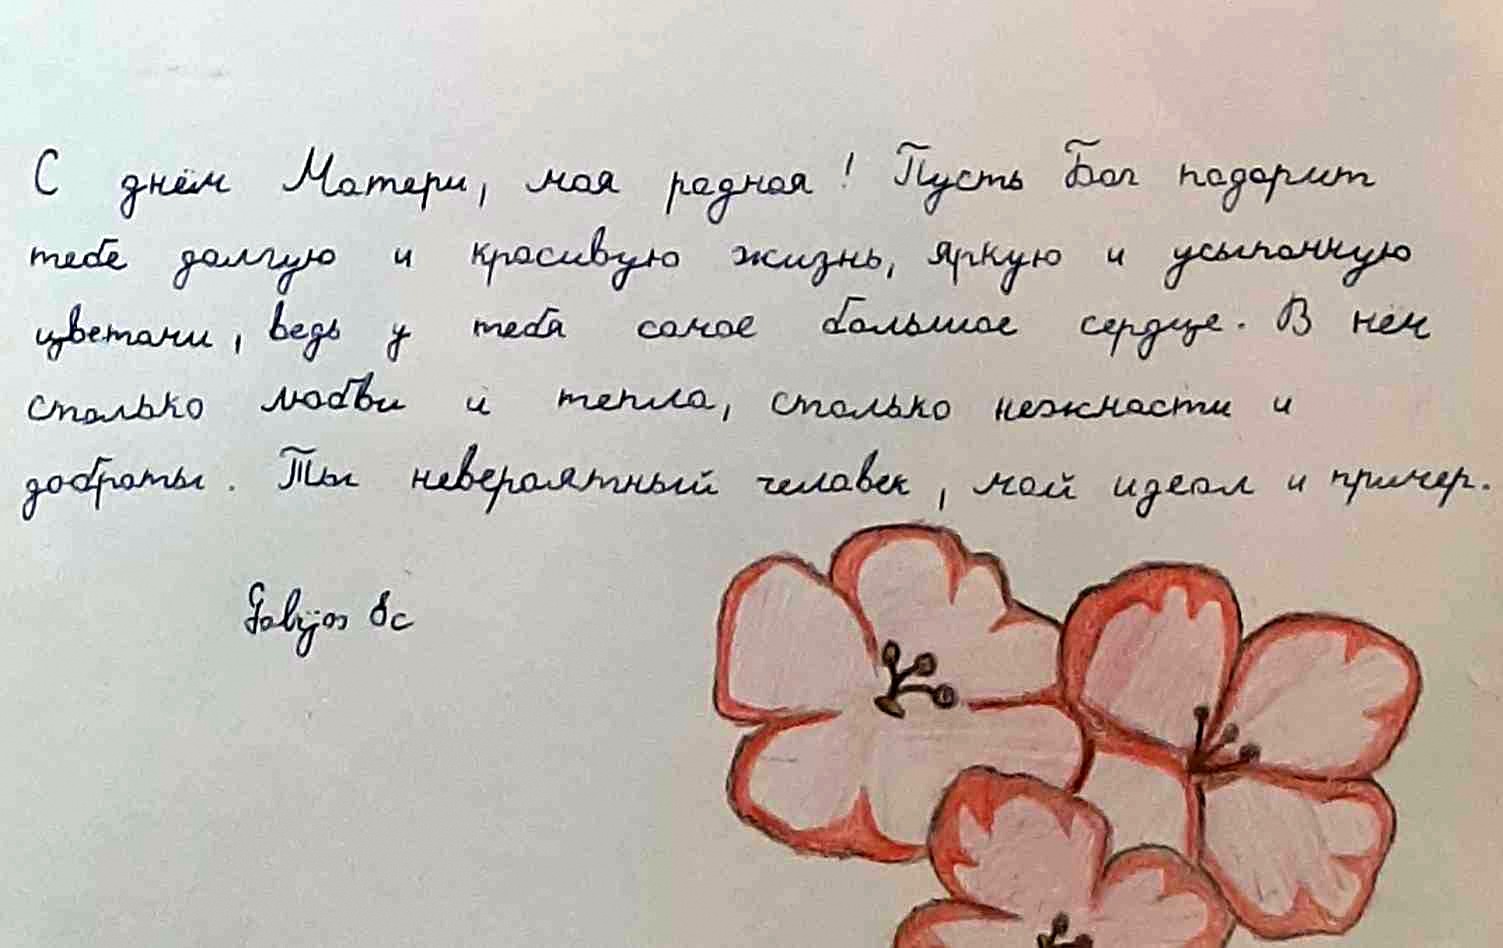 С днём Матери, моя родная! Пусть Бог подарит
тебе долгую и красивую жизнь, яркую и усыпанную
цветами, ведь у тебя самое большое сердце. В нём
столько любви и тепла, столько нежности и
доброты. Ты невероятный человек, мой идеал и пример.
Gabijos 8c